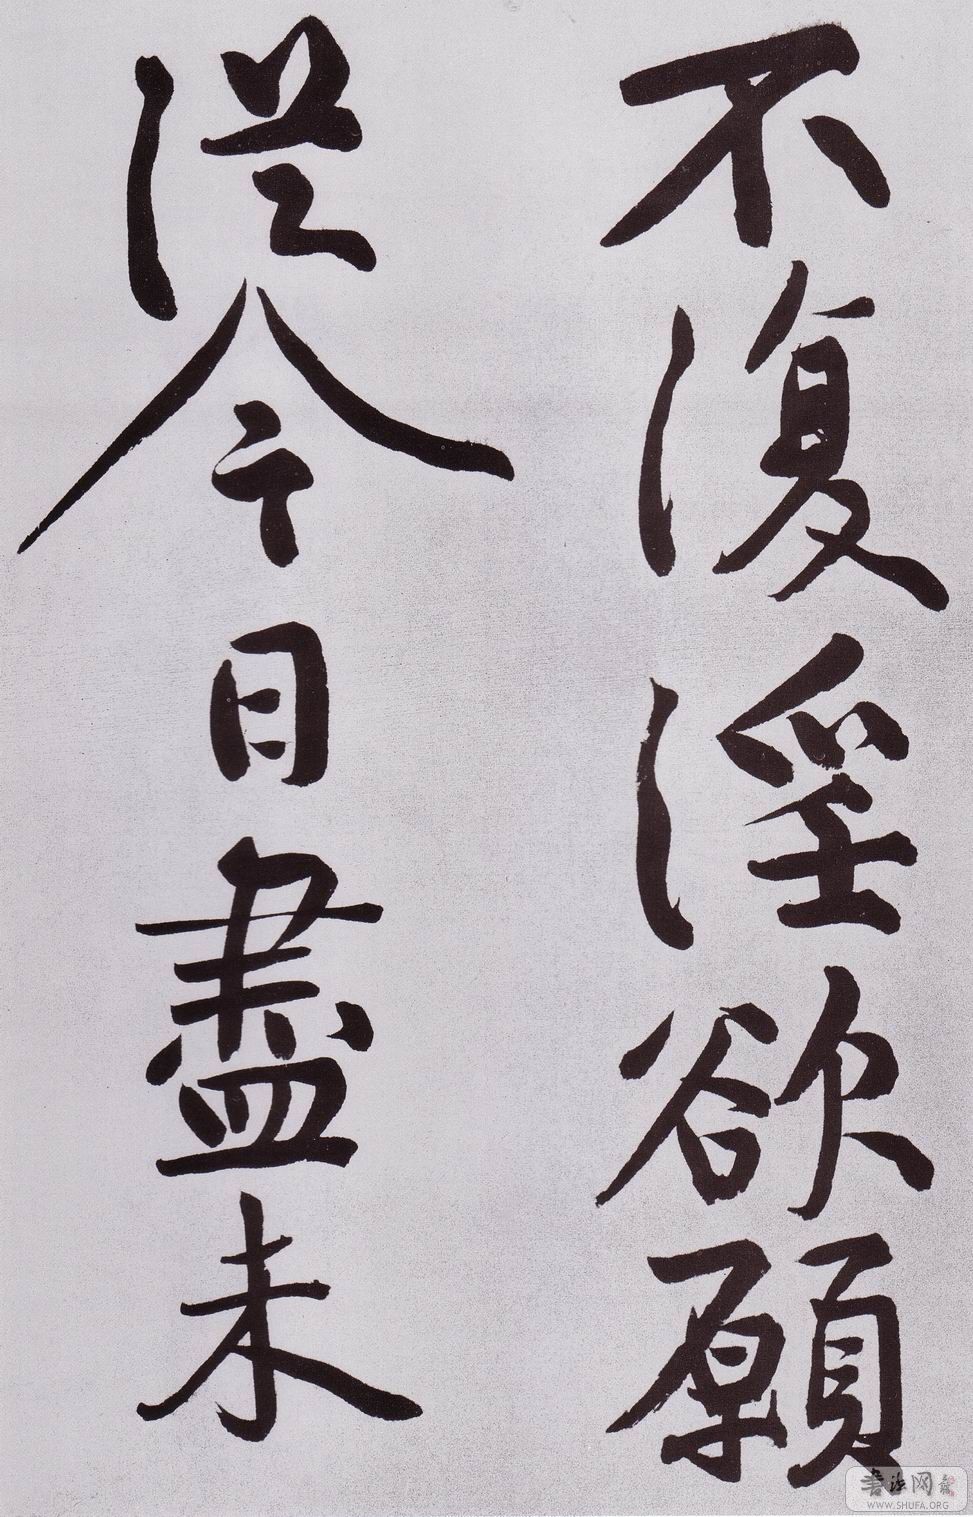 不復淫欲願
從今日盡未
書法网
WWW.SHUFA.ORG